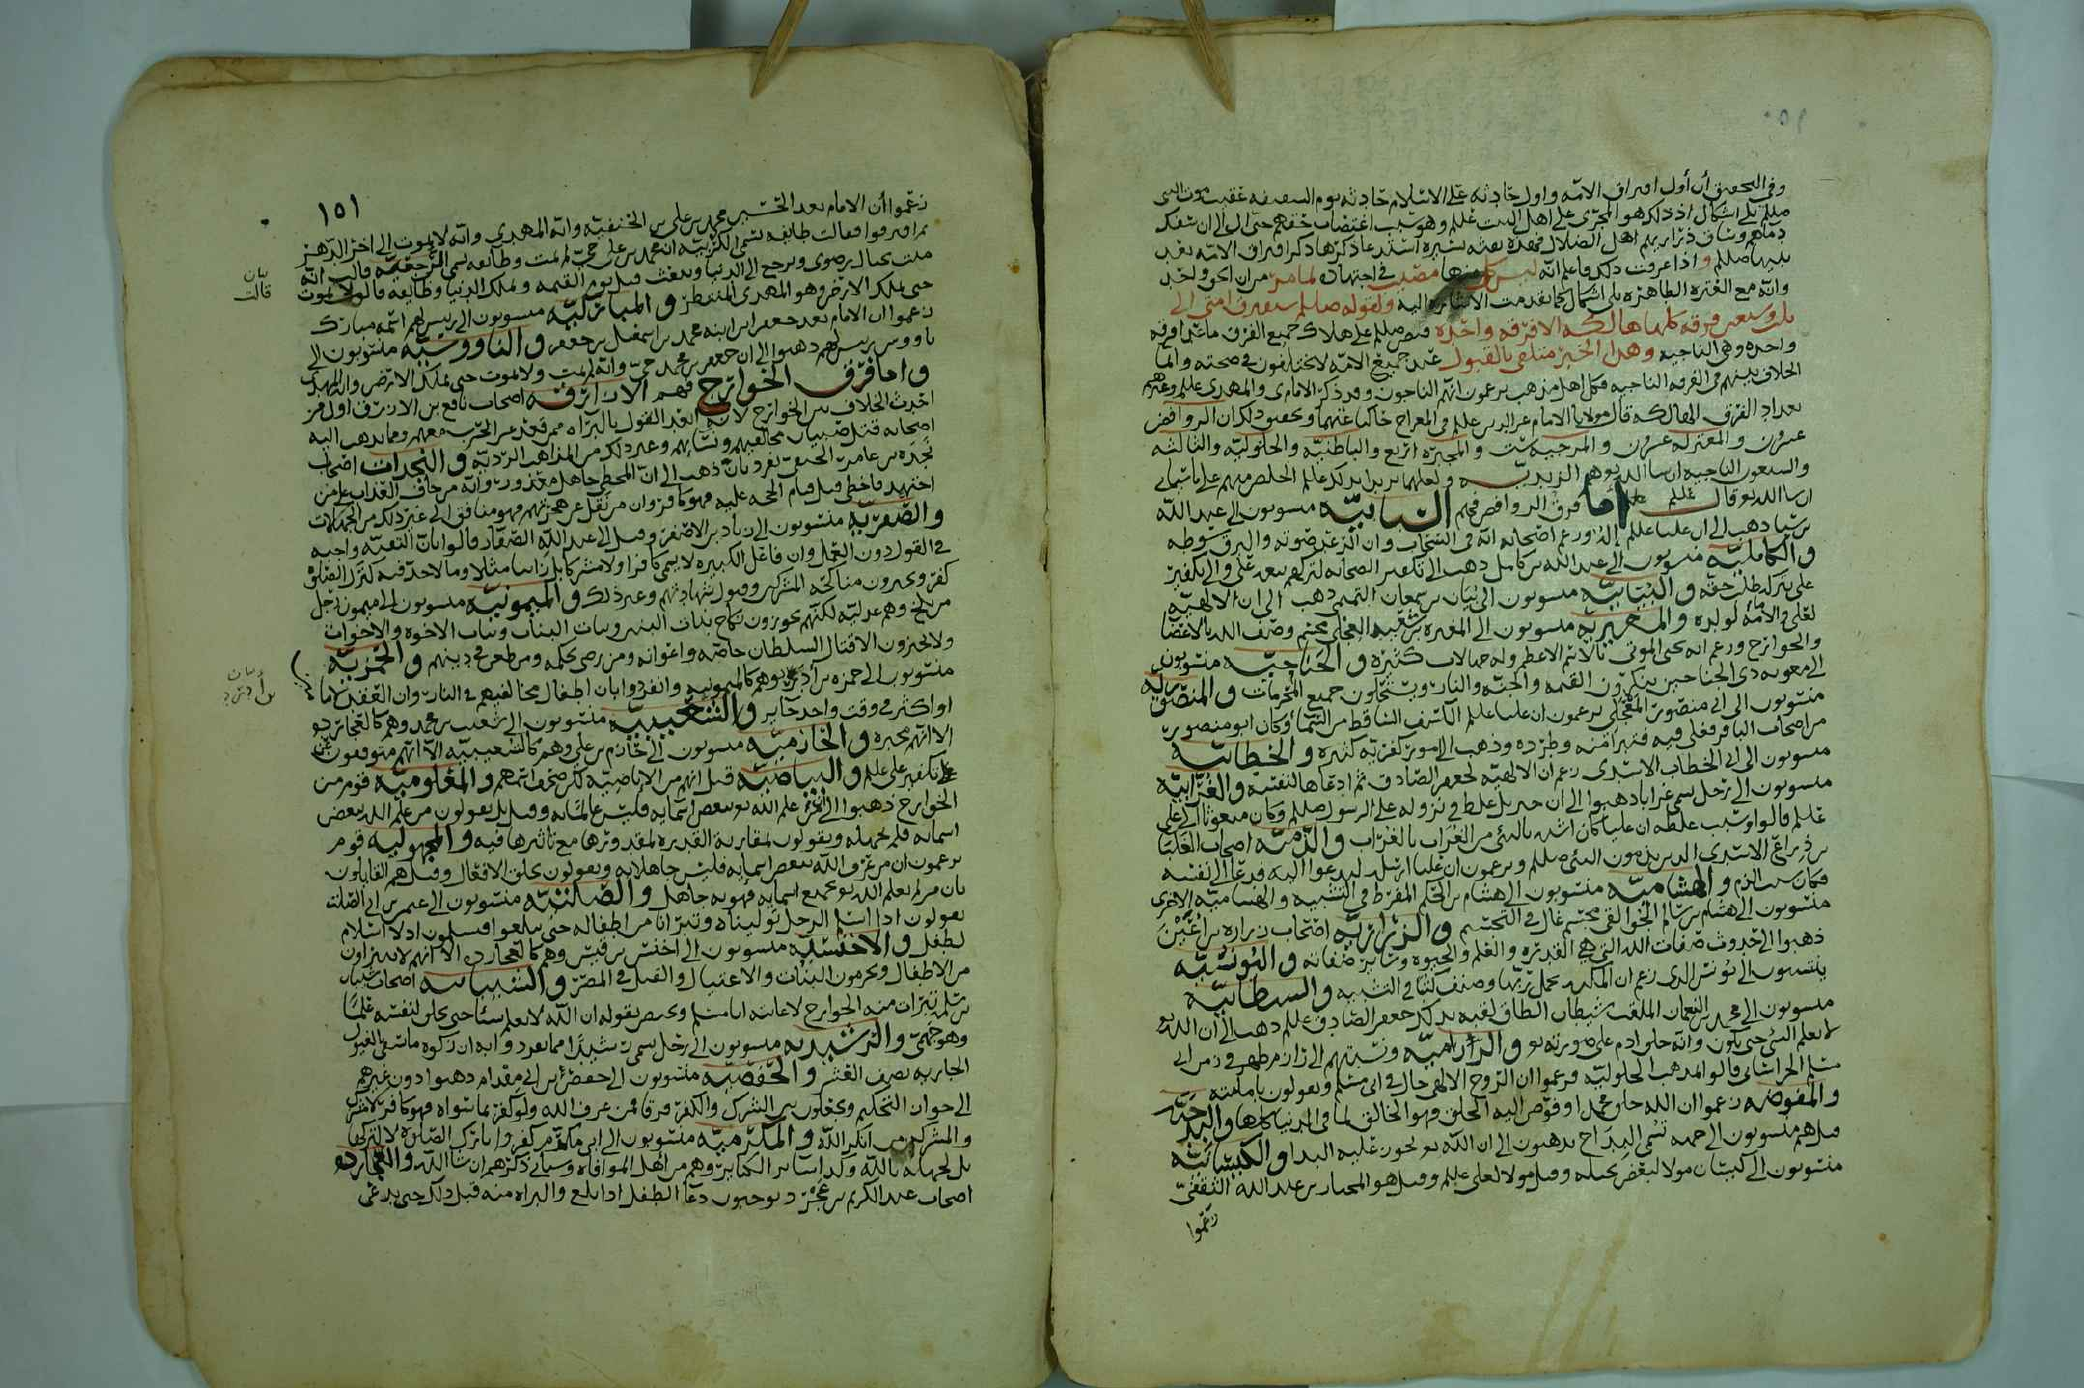 وفي التحقيق أن أول افتراق الامه واول حادثه على الاسلام حادثه يوم السقيفه عقيب موت النبي
صللم بلى اشكال اذ ذلك هو المجرى على اهل البيت عللم وهو سبب اغتصاب حقهم حتى ال الى ان سفك
دماهم وشاق ذراريهم اهل الضلال فهذه نعثه يسيره استدعا ذكرها ذكر افتراق الامه بعد
نبيها صللم واذا عرفت ذلك فاعلم انه ليس كل منها مصيب في اجتهاده لما مر من ان الحق واحد
وانه مع العتره الطاهره بلى اشكال كما تقدمت الاشاره اليه ولقوله صللم ستفترق امتي الى
ثلث وسبعين فرقه كلها هالكه الا فرقه واحده فنص صللم على هلاك جميع الفرق ما عدا فرقه
واحده وهي الناجيه وهذا الخبر متلقى بالقبول عند جميع الامه لا يختلفون في صحته وانما
الخلاف بينهم في الفرقه الناجيه فكل اهل مذهب يزعمون انهم الناجون وقد ذكر الامام ي والمهدي عللم وغيرهم
تعداد الفرق الهالكه قال مولانا الامام عز الدين عللم في المعراج حاكيا عنهما وتحقيق ذلك ان الروافض
عشرون والمعتزله عشرون والمرجيه ست والمجبره اربع والباطنيه والحلوليه والثالثه
والسبعون الناجيه ان سا الله وهم الزيديه ولعلهما يريدا بذلك عللم الخلص منهم على ما سياتي
ان سا الله تعو قال عللم اما فرق الروافض فهم السبائيه منسوبون الى عبد الله
بن سبا ذهب الى ان عليا عللم اله وزعم اصحابه انه في السحاب وان الرعد صوته والبرق سوطه
والكامليه منسوبون الى عبد الله بن كامل ذهب الى تكفير الصحابه لتركهم بيعه علي والى تكفير
علي بتركه طلب حقه والبيانيه منسوبون الى بيان بن سمعان التميمي ذهب الى ان الالهيه
لعلي والامامه لولده والمغيريه منسوبون الى المغيره بن شعبه العجلي مجسم وصف الله بالاعضا
والجوارح وزعم انه يحيي الموتى بالاسم الاعظم وله جهالات كثيره والجناحيه منسوبون
الى معويه ذي الجناحين ينكرون القيمه والجنه والنار ويستحلون جميع المحرمات والمنصوريه
منسوبون الى ابي منصور العجلي يزعمون ان عليا عللم الكسف الساقط من السما وكان ابو منصور
من اصحاب الباقر فغلى فيه فتبرا منه وطرده وذهب الى امور كفريه كثيره والخطابيه
منسوبون الى ابي الخطاب الاسدي زعم ان الالهيه لجعفر الصادق ثم ادعاها لنفسه والغرابيه
منسوبون الى رجل سمي غرابا ذهبوا الى ان جبريل غلط في نزوله على الرسول صللم وكان مبعوثا الى علي
عللم قالوا وسبب غلطه ان عليا كان اشبه بالنبي من الغراب بالغراب والذميه اصحاب العلبا
بن ذراع الاسدي الذين يذمون النبي صللم ويزعمون ان عليا ارسله ليدعوا اليه فدعا الى نفسه
فكان سبب الذم والهشاميه منسوبون الى هشام بن الحكم المفرط في التشبيه والهشاميه الاخرى
منسوبون الى هشام بن سالم الجواليقي مجسم غال في التجسيم والزراريه اصحاب زراره بن اعين
ذهبوا الى حدوث صفات الله التي هي القدره والعلم والحيوه وساير صفاته واليونسيه
ينتسبون الى يونس الذي زعم ان الملايكه تحمل ربها وصنف كتبا في التشبيه والشيطانيه
منسوبون الى محمد بن النعمان الملقب شيطان الطاق لقبه بذلك جعفر الصادق عللم ذهب الى ان الله تعو
لا يعلم الشي حتى يكون وانه خلق ادم على صورته تعو والرزاميه ونسبتهم الى رزام
مسلم الخراساني قالوا بمذهب الحلوليه فزعموا ان الروح الالهي حال في ابي مسلم ويقولون بامامته
والمفوضه زعموا ان الله خلق محمدا وفوض اليه الخلق فهو الخالق لما في الدنيا كلها والبداييه
قيل هم منسوبون الى جمعه تسمى البداح يذهبون الى ان الله تعو يجوز عليه البدا والكيسانيه
منسوبون الى كيسان مولا لبعض بجيله وقيل مولا لعلي عللم وقيل هو المختار بن عبد الله الثقفي
زعموا
١٥١
زعموا أن الامام بعد الحسين محمد بن علي بن الحنفيه وانه المهدي وانه لا يموت الى اخر الدهر
ثم افترقوا فقالت طايفه تسمى الكربيه ان محمد بن علي حي لم يمت وطايفه تسمى الرجعيه قالت انه
ميت بجبال رضوى ويرجع الى الدنيا ويبعث قبل يوم القيمه ويملك الدنيا وطايفه قالوا لا يموت
حتى يملك الارض وهو المهدي المنتظر والمباركيه منسوبون الى رييس لهم اسمه مبارك
زعموا ان الامام بعد جعفر ابن ابنه محمد بن اسمعيل بن جعفر والناووسيه منسوبون الى
ناووس رييس لهم ذهبوا الى ان جعفر بن محمد حي وانه لم يمت ولا يموت حتى يملك الارض وانه المهدي
واما فرق الخوارج فهم الازارقه اصحاب نافع بن الازرق اول من
احدث الخلاف بين الخوارج لانه القول بالبراه ممن قعد عن الحرب معهم ومما يذهب اليه
اصحابه قتل صبيان مخالفيهم ونسايهم وغير ذلك من المذاهب الرديه والنجدات اصحاب
نجده بن عامر الحنفي تفرد بان ذهب الى ان المخطي جاهل معذور وانه من خاف العذاب على من
اجتهد فاخطى قبل قيام الحجه عليه فهو كافر وان من ثقل عن هجرتهم فهو منافق الى غير ذلك من الجهالات
والصفريه منسوبون الى زياد بن الاصفر وقيل الى عبد الله الصفار قالوا بان التقيه واجبه
في القول دون العمل وان فاعل الكبيره لا يسمى كافرا ولا مشركا بل زانيا مثلا وما لا حد فيه كترك الصلوه
كفر ويجيزون مناكحه المشركين وقبول شهادتهم وغير ذلك والميمونيه منسوبون الى ميمون رجل
من بلخ وهم عدليه لكنهم يجوزون نكاح بنات البنين وبنات البنات وبنات الاخوه والاخوات
ولا يجيزون الا قتال السلطان خاصه واعوانه ومن رضي بحكمه ومن طعن في دينهم والحمزيه
منسوبون الى حمزه بن أدرك وهم كالميمونيه وانفردوا بان اطفال مخالفيهم في النار وان العقد لامامين
او اكثر في وقت واحد جايز والشعيبيه منسوبون الى شعيب بن محمد وهم كالعجارده
الا انهم مجبره والخازميه منسوبون الى خازم بن علي وهم كالشعيبيه الا انهم متوقفون عن
تكفير علي عللم والبياضيه قيل انهم من الاباضيه لكن صحف اسمهم والمعلوميه قوم من
الخوارج ذهبوا الى ان من علم الله تعو ببعض اسمايه فليس عالما به وقيل بل يقولون من علم الله ببعض
اسمايه فلم يجهله ويقولون بمقارنه القدره لمقدورها مع تاثيرها فيه والمجهوليه قوم
يزعمون ان من عرف الله ببعض اسمايه فليس جاهلا به ويقولون بخلق الافعال وقيل هم القايلون
بان من لم يعلم الله تعو بجميع اسمايه فهو به جاهل والصلتيه منسوبون الى عثمن بن ابي الصلت
يقولون اذا اسلم الرجل توليناه وتبرانا من اطفاله حتى يبلغوا فيسلمون اذ لا اسلام
لطفل والاخنسيه منسوبون الى اخنس بن قيس وهم كالعجارده الا انهم لا يتبراون
من الاطفال ويحرمون البيات والاغتيال والقتل في المصر والشيبانيه اصحاب شيبان
بن سلمه تبرات منه الخوارج لاعانته ابا مسلم ويختص بقوله ان الله لا يعلم شيا حتى يخلق لنفسه علما
وهو جهمي والرشيديه منسوبون الى رجل يسمى رشيدا مما تفرد وا به ان زكوه ما سقي بالعيون
الجاريه نصف العشر والحفصيه منسوبون الى حفص بن ابي مقدام ذهبوا دون غيرهم
الى جواز التحكيم ويجعلون بين الشرك والكفر فرقا فمن عرف الله ولو كفر بما سواه فهو كافر لا مشرك
والمشرك من انكر الله والمكرميه منسوبون الى ابي مكرم من كفر تارك الصلوه لا لتركها
بل لجهله بالله وكذا ساير الكباير وهم من اهل الموافاه وسياتي ذكرهم ان شا الله والعجارده
اصحاب عبد الكريم بن عجرد يوجبون دعا الطفل اذا بلغ والبراه منه قبل ذلك حتى يدعى
بيان
قالت
بيان
بن أدرك